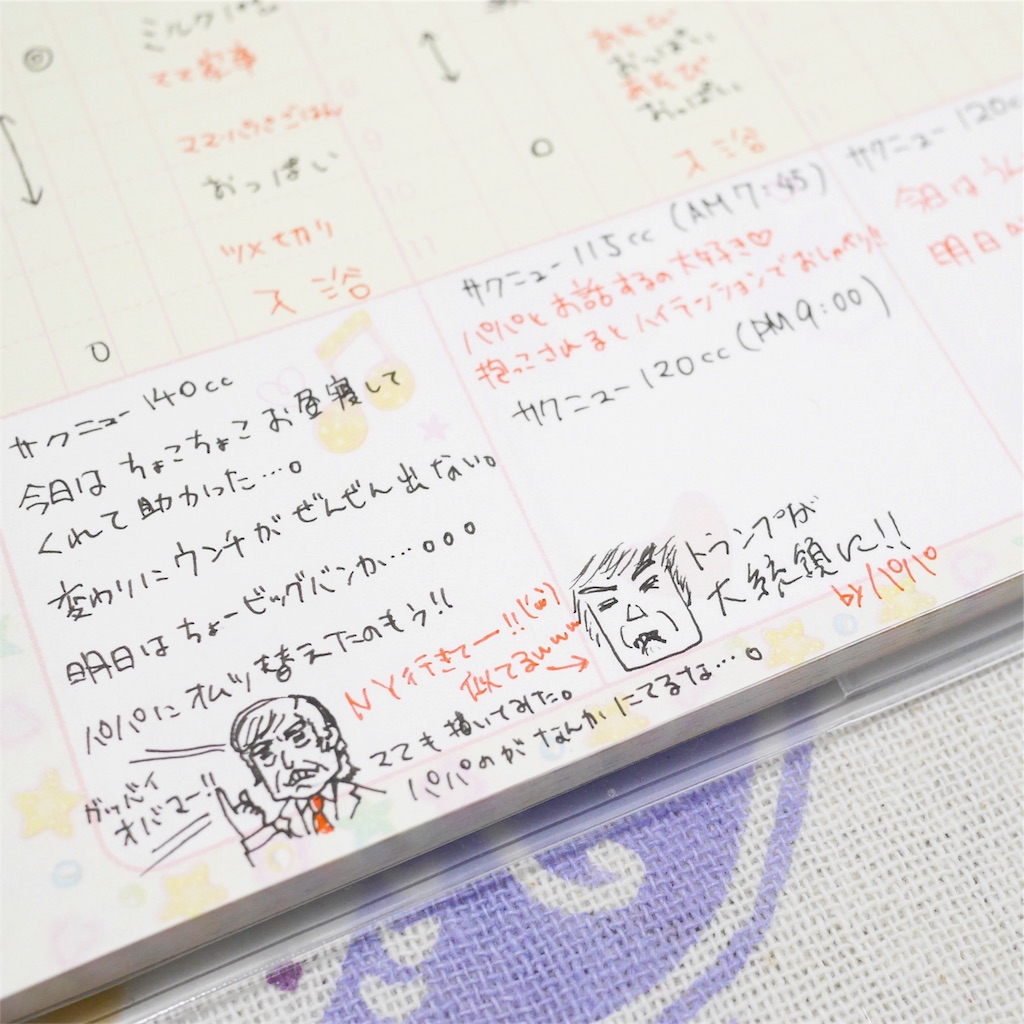 ミルク
ママ家事
ママパパごはん
おっぱい
ツメセカリ
ス 三谷
あそび
おっぱい
あそび
おっぱい
ス 三谷
7
9
10
11
サクニュー 140cc
今日は ちょこちょこ お昼寝して
くれて助かった…。
変わりに ウンチが ぜんぜん出ない。
明日は ちょービッグバンか…。。。
パパに オムツ替えたのもう!!
グッバイ
オバマー!!
ママも描いてみた。
パパのが なんか にてるな…。
サクニュー 115cc (AM 7:45)
パパと お話するの 大好き♡
抱っこされると ハイテンションで おしゃべり!!
サクニュー 120cc (PM 9:00)
トランプが
大統領に!!
by パパ
NY行きてー!!
似てるwww
サクニュー 120c
今日は うん
明日